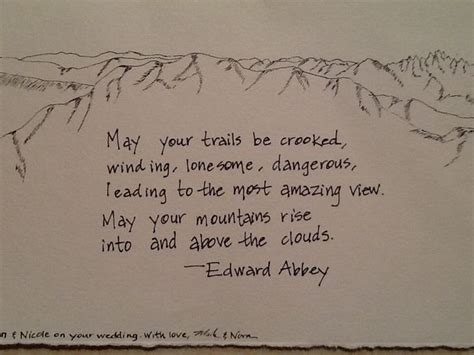 May your trails be crooked,
winding, lonesome, dangerous,
leading to the most amazing view.
May your mountains rise
into and above the clouds.
—Edward Abbey
& Nicole on your wedding. With love, & Nora